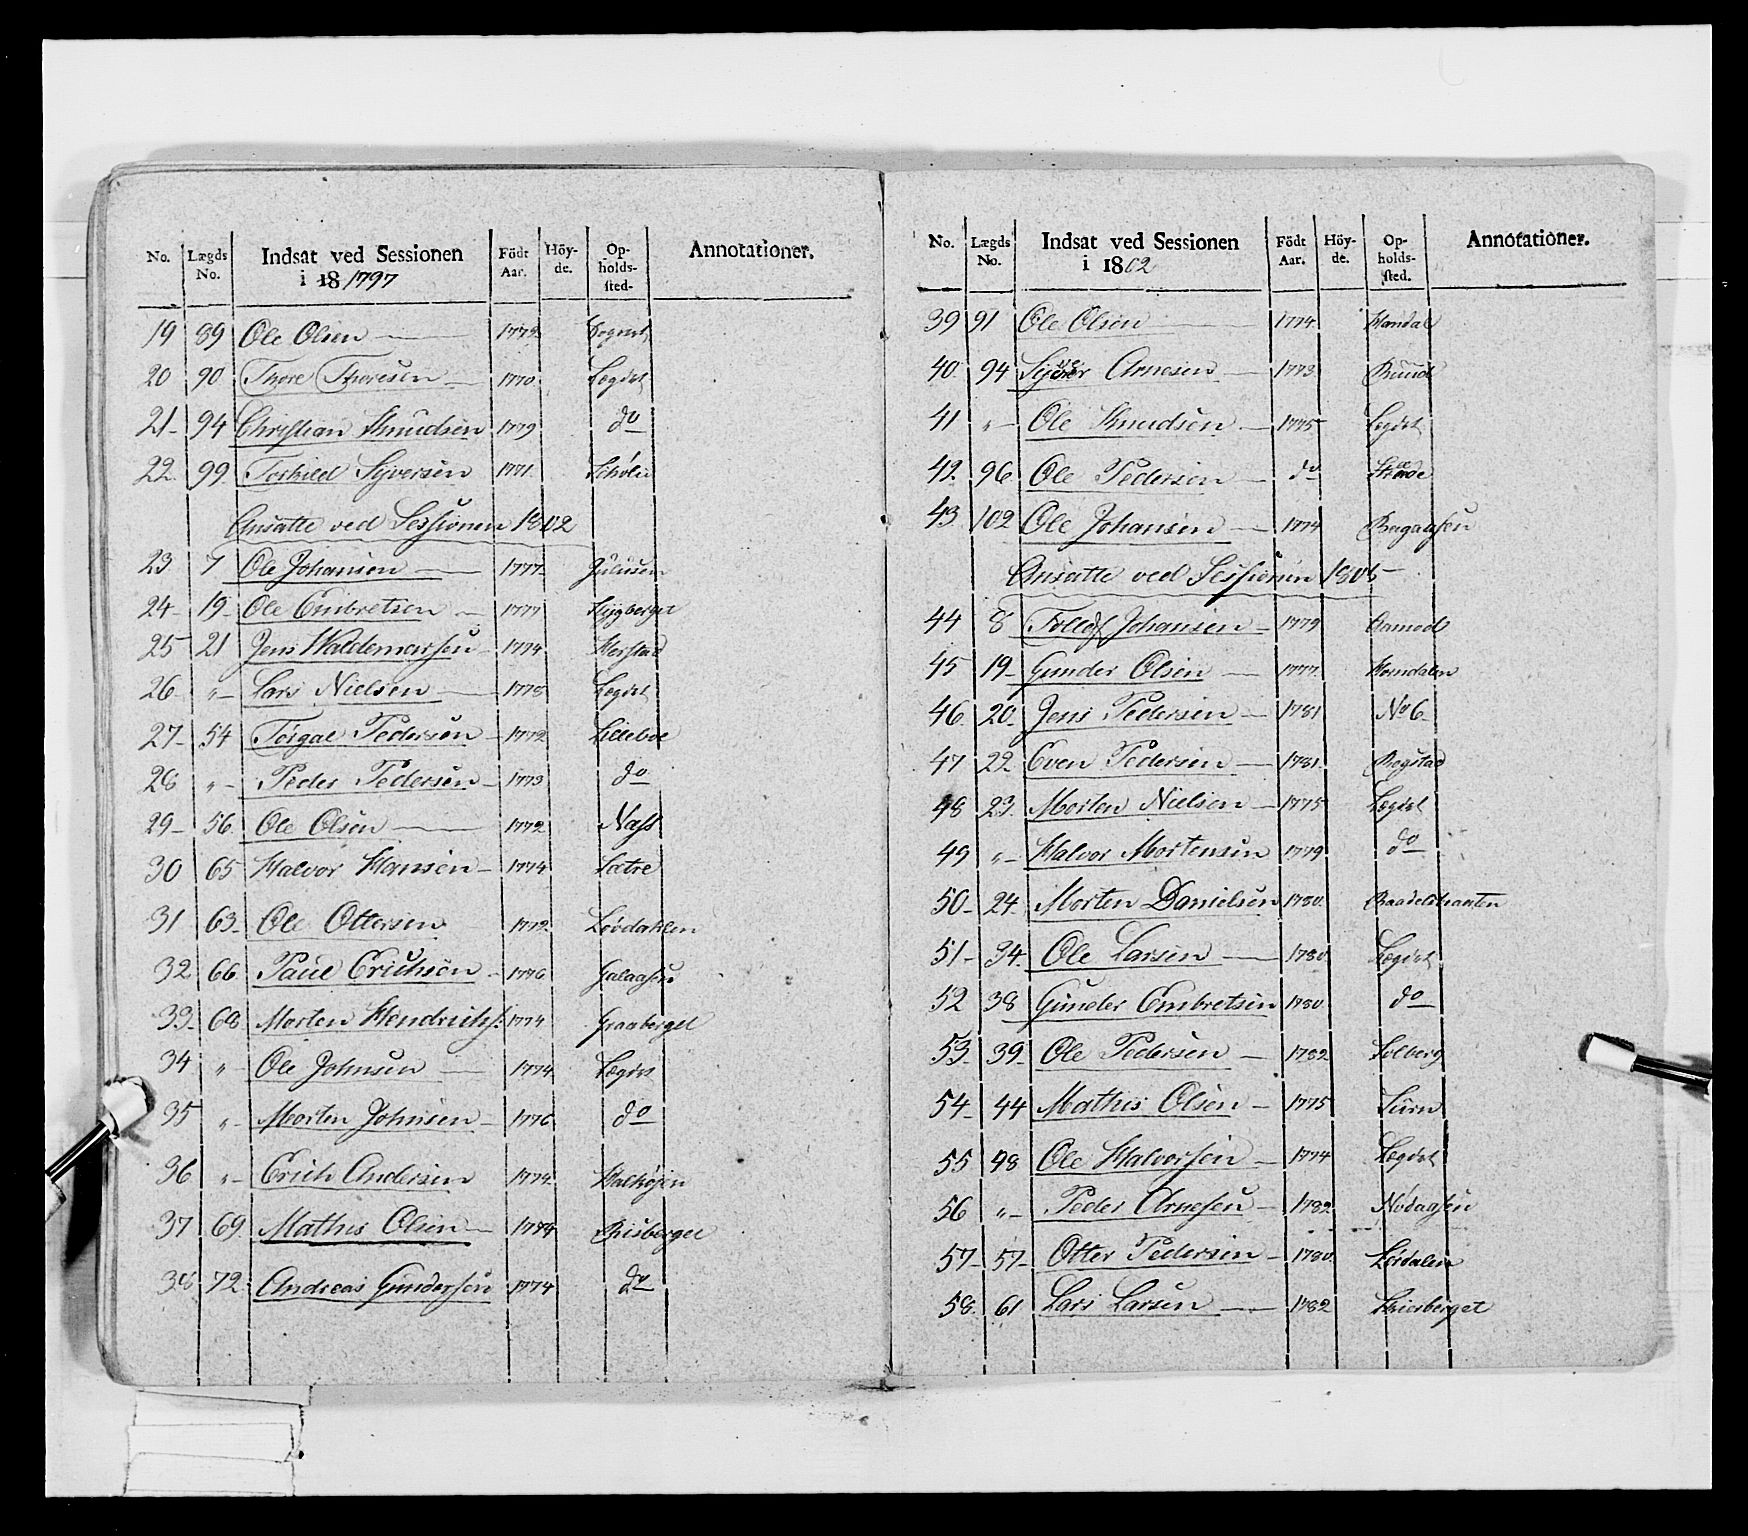 No. Lægds No. Indsat ved Sessionen i 18 1797 Födt Aar. Höyde. Opholdssted. Annotationer.
19 89 Ole Olsen 1772
20 90 Thore Thoresen 1770 Lægdet
21 94 Christian Knudsen 1779 do
22 99 Torkild Syversen 1771
Ansatte ved Sessionen 1802
23 7 Ole Johansen 1777 Julusen
24 19 Ole Embretsen 1777 Flygberget
25 21 Jens Waldemarsen 1774 Herstad
26 " Lars Nielsen 1778 Lægdet
27 54 Torgal Pedersen 1772 Lilleboe
28 " Peder Pedersen 1773 do
29 56 Ole Olsen 1772 Næss
30 65 Halvor Hansen 1774 Sætre
31 63 Ole Ottersen 1772 Lövdahlen
32 66 Paul Erichsen 1776 Galaasen
33 68 Morten Hendrichs: 1774 Graaberget
34 " Ole Johnsen 1774 Lægdet
35 " Morten Johnsen 1776 do
36 " Erich Andersen 1772
37 69 Mathis Olsen 1774 Risberget
38 72 Andreas Gundersen 1774 do
No. Lægds No. Indsat ved Sessionen i 1802 Födt Aar. Höyde. Opholdssted. Annotationer.
39 91 Ole Olsen 1774
40 94 Syver Arnesen 1773
41 " Ole Knudsen 1775 Lægdet
42 96 Ole Pedersen do
43 102 Ole Johansen 1774
Ansatte ved Sessionen 1805
44 8 Tollef Johansen 1779 Aamod
45 19 Gunder Olsen 1777 Horndalen
46 20 Jens Pedersen 1781 No 6
47 22 Even Pedersen 1781 Rogstad
48 23 Morten Nielsen 1775 Lægdet
49 " Halvor Mortensen 1779 do
50 24 Morten Danielsen 1780
51 34 Ole Larsen 1780 Lægdet
52 38 Gunder Embretsen 1780 do
53 39 Ole Pedersen 1782 Solberg
54 44 Mathis Olsen 1775
55 48 Ole Halvorsen 1774 Lægdet
56 " Peder Arnesen 1782 Nödaasen
57 57 Otter Pedersen 1780 Lördalen
58 61 Lars Larsen 1782